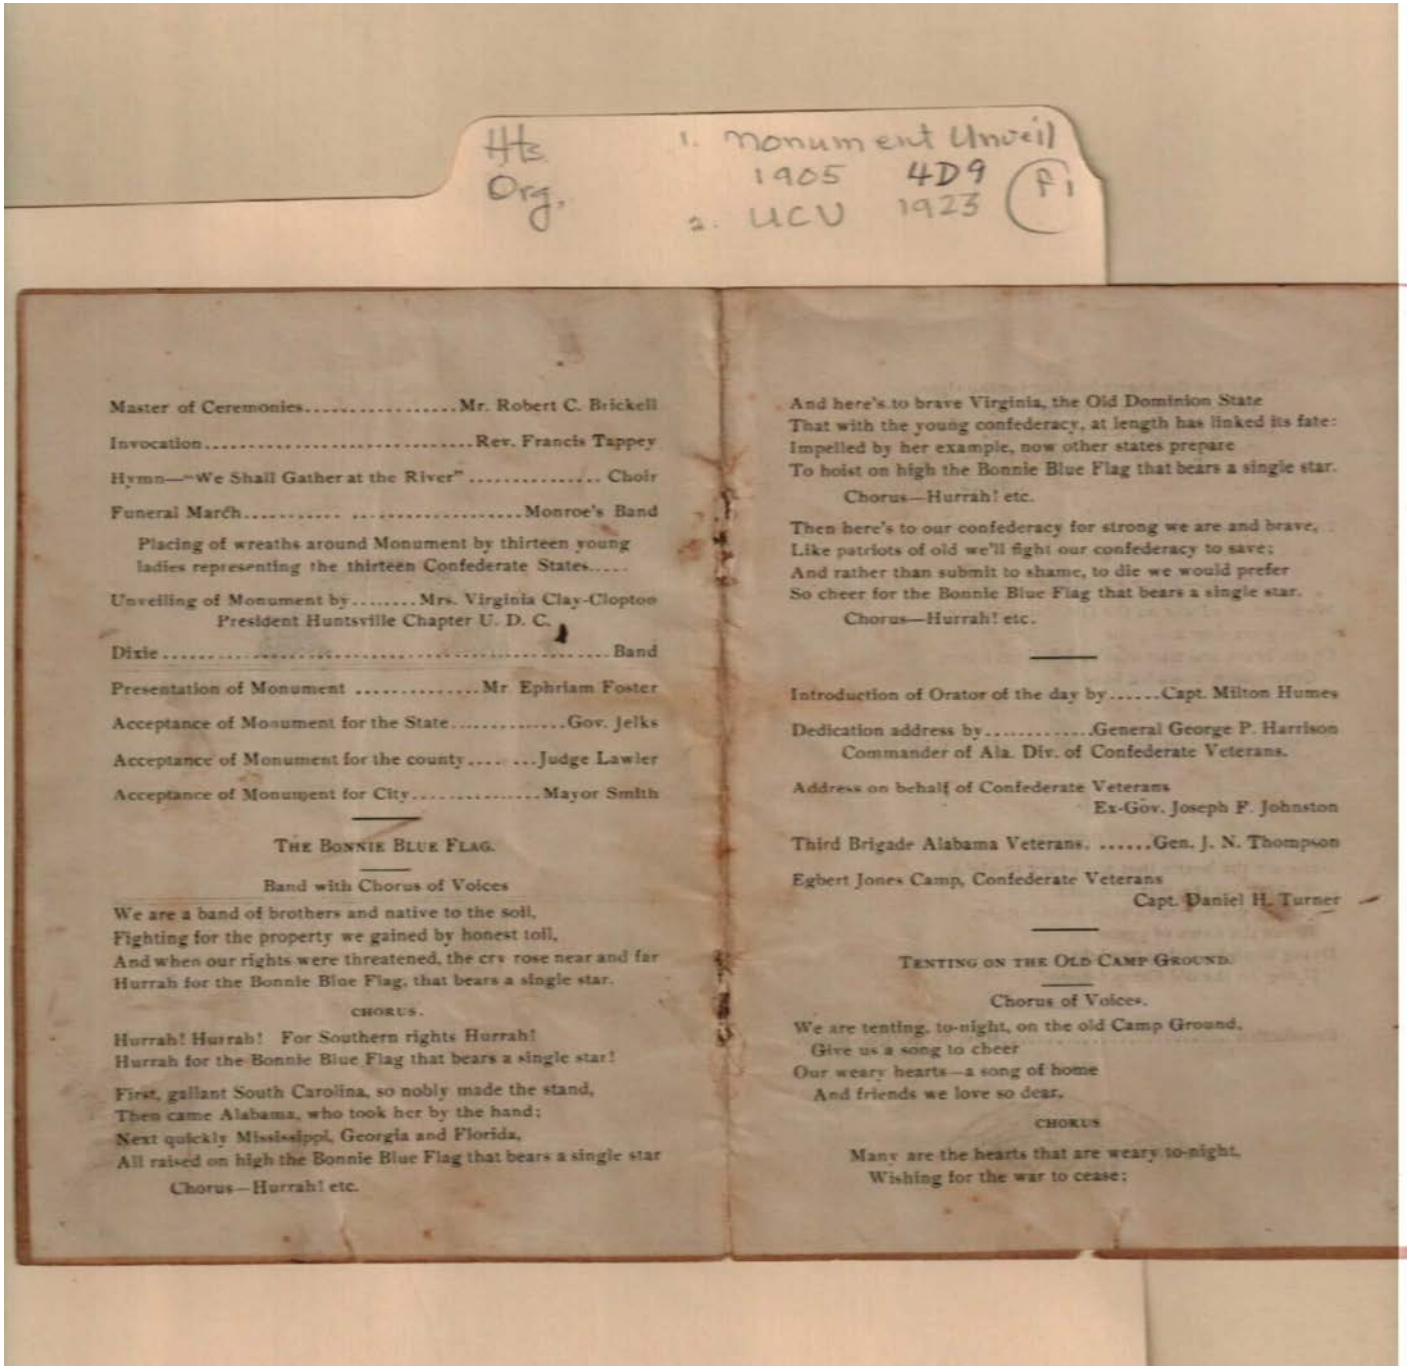 Hts. 1. Monument Unveil
Org. 1905 4D9 P1
2. UCV 1923
Master of Ceremonies.................Mr. Robert C. Brickell
Invocation..............................Rev. Francis Tappey
Hymn—"We Shall Gather at the River" ............... Choir
Funeral March........... ...................Monroe's Band
Placing of wreaths around Monument by thirteen young
ladies representing the thirteen Confederate States.....
Unveiling of Monument by........Mrs. Virginia Clay-Clopton
President Huntsville Chapter U. D. C.
Dixie..................................................Band
Presentation of Monument ..............Mr Ephriam Foster
Acceptance of Monument for the State.............Gov. Jelks
Acceptance of Monument for the county.... ...Judge Lawler
Acceptance of Monument for City...............Mayor Smith
THE BONNIE BLUE FLAG.
Band with Chorus of Voices
We are a band of brothers and native to the soil,
Fighting for the property we gained by honest toil,
And when our rights were threatened, the cry rose near and far
Hurrah for the Bonnie Blue Flag, that bears a single star.
CHORUS.
Hurrah! Hurrah! For Southern rights Hurrah!
Hurrah for the Bonnie Blue Flag that bears a single star!
First, gallant South Carolina, so nobly made the stand,
Then came Alabama, who took her by the hand;
Next quickly Mississippi, Georgia and Florida,
All raised on high the Bonnie Blue Flag that bears a single star
Chorus—Hurrah! etc.
And here's to brave Virginia, the Old Dominion State
That with the young confederacy, at length has linked its fate:
Impelled by her example, now other states prepare
To hoist on high the Bonnie Blue Flag that bears a single star.
Chorus—Hurrah! etc.
Then here's to our confederacy for strong we are and brave,
Like patriots of old we'll fight our confederacy to save;
And rather than submit to shame, to die we would prefer
So cheer for the Bonnie Blue Flag that bears a single star.
Chorus—Hurrah! etc.
Introduction of Orator of the day by......Capt. Milton Humes
Dedication address by............General George P. Harrison
Commander of Ala. Div. of Confederate Veterans.
Address on behalf of Confederate Veterans
Ex-Gov. Joseph F. Johnston
Third Brigade Alabama Veterans. ......Gen. J. N. Thompson
Egbert Jones Camp, Confederate Veterans
Capt. Daniel H. Turner
TENTING ON THE OLD CAMP GROUND.
Chorus of Voices.
We are tenting, to-night, on the old Camp Ground,
Give us a song to cheer
Our weary hearts—a song of home
And friends we love so dear,
CHORUS
Many are the hearts that are weary to-night,
Wishing for the war to cease;